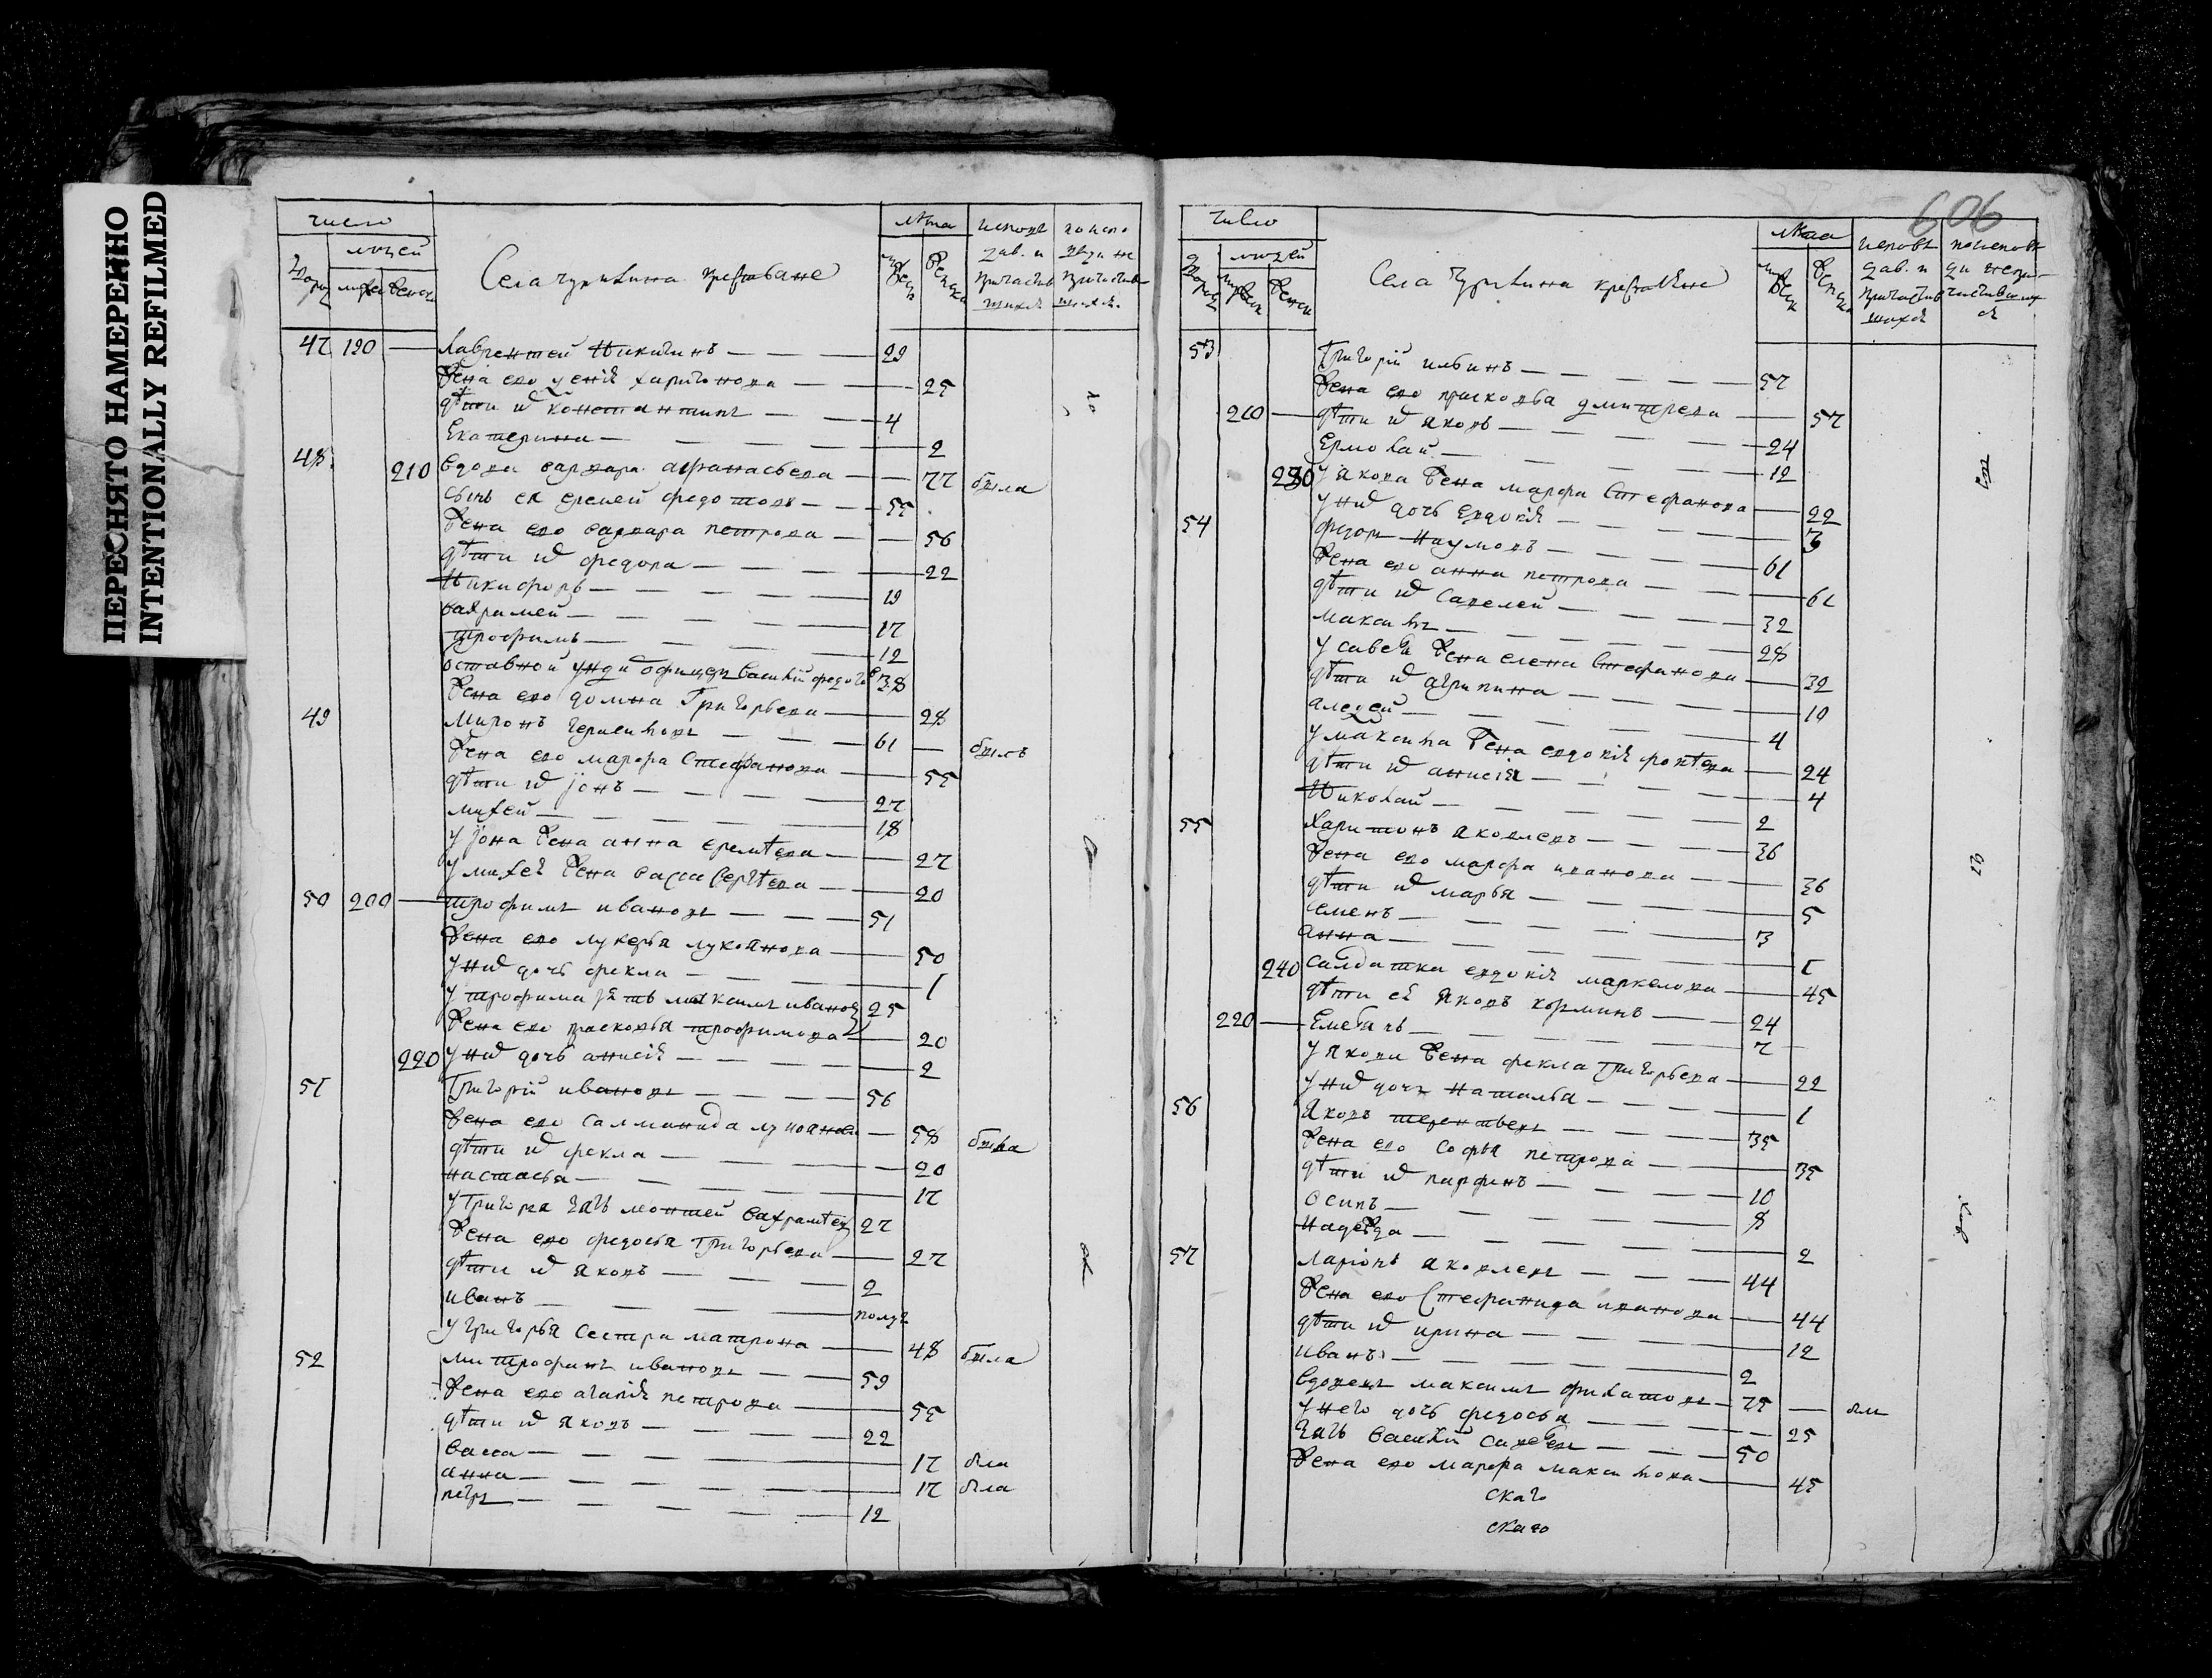 ПЕРЕСНЯТО НАМЕРЕННО
INTENTIONALLY REFILMED
число
людей
Села чуривина крестьяне
лѣта
47 190 — Лаврентей Никитинъ — 29
Жена ево харитонова — 25
дѣти их константинъ — 4
Екатерина — 2
48 210 вдова варвара афанасьева — 77 была
сынъ ея еремей федотовъ — 55
Жена ево варвара петрова — 56
дѣти их федора — 22
Никифоръ — 19
вахрамей — 17
трофимъ — 12
оставной ундирофицеръ василий федотов 38
Жена ево домна Григорьева — 28
49 Миронъ — 61 — былъ
Жена ево марфа Стефанова — 55
дѣти их іонъ — 27
михей — 18
у іона жена анна еремѣева — 27
у михея жена васса Сергѣева — 20
50 200 — трофимъ ивановъ — 51
Жена ево лукерья лукоянова — 50
у них дочь фекла — 1
у трофима зять максимъ иванов 25
Жена ево прасковья трофимова — 20
220 у них дочь анисія — 2
51 Григорій ивановъ — 56
Жена ево Салманида — 58 была
дѣти их фекла — 20
настасья — 17
у Григорья зять леонтей вахрамѣев 27
Жена ево федосья Григорьева — 27
дѣти их яковъ — 2
иванъ — полуг
у григорья сестра матрона — 48 была
52 митрофанъ ивановъ — 59
Жена ево агапія петрова — 55
дѣти их яковъ — 22
васса — 17 бла
анна — 17 бла
петръ — 12
606
число
людей
Села чуривина крестьяне
лѣта
53 Григорій ильинъ — 57
Жена ево прасковья дмитрева — 57
210 — дѣти их яковъ — 24
Ермолай — 12
230 у якова жена марфа Стефанова — 22
у них дочь евдокія — 3
54 федоръ наумовъ — 61
Жена ево анна петрова — 61
дѣти их савелей — 32
максимъ — 28
у савелья жена елена Стефанова — 32
дѣти их агрипина — 10
алексей — 4
у максима жена евдокія фокѣева — 24
дѣти их анисія — 4
Николай — 2
55 Харитонъ яковлевъ — 36
Жена ево марфа иванова — 36
дѣти их марья — 5
семенъ — 3
анна — 1
240 салдатка евдокія маркелова — 45
дѣти ея яковъ — 24
220 — Емельянъ — 7
у якова жена фекла Григорьева — 22
у них дочь наталья — 1
56 яковъ терентьевъ — 35
Жена ево софья петрова — 35
дѣти их парфенъ — 10
Осипъ — 8
надежда — 2
57 Ларіонъ яковлевъ — 44
Жена ево Стефанида иванова — 44
дѣти их ирина — 12
иванъ — 2
вдовецъ максимъ филатовъ — 75 —
у него дочь федосья — 25
зять василій савельевъ — 50
Жена ево марфа максимова — 45
скаго
скаго